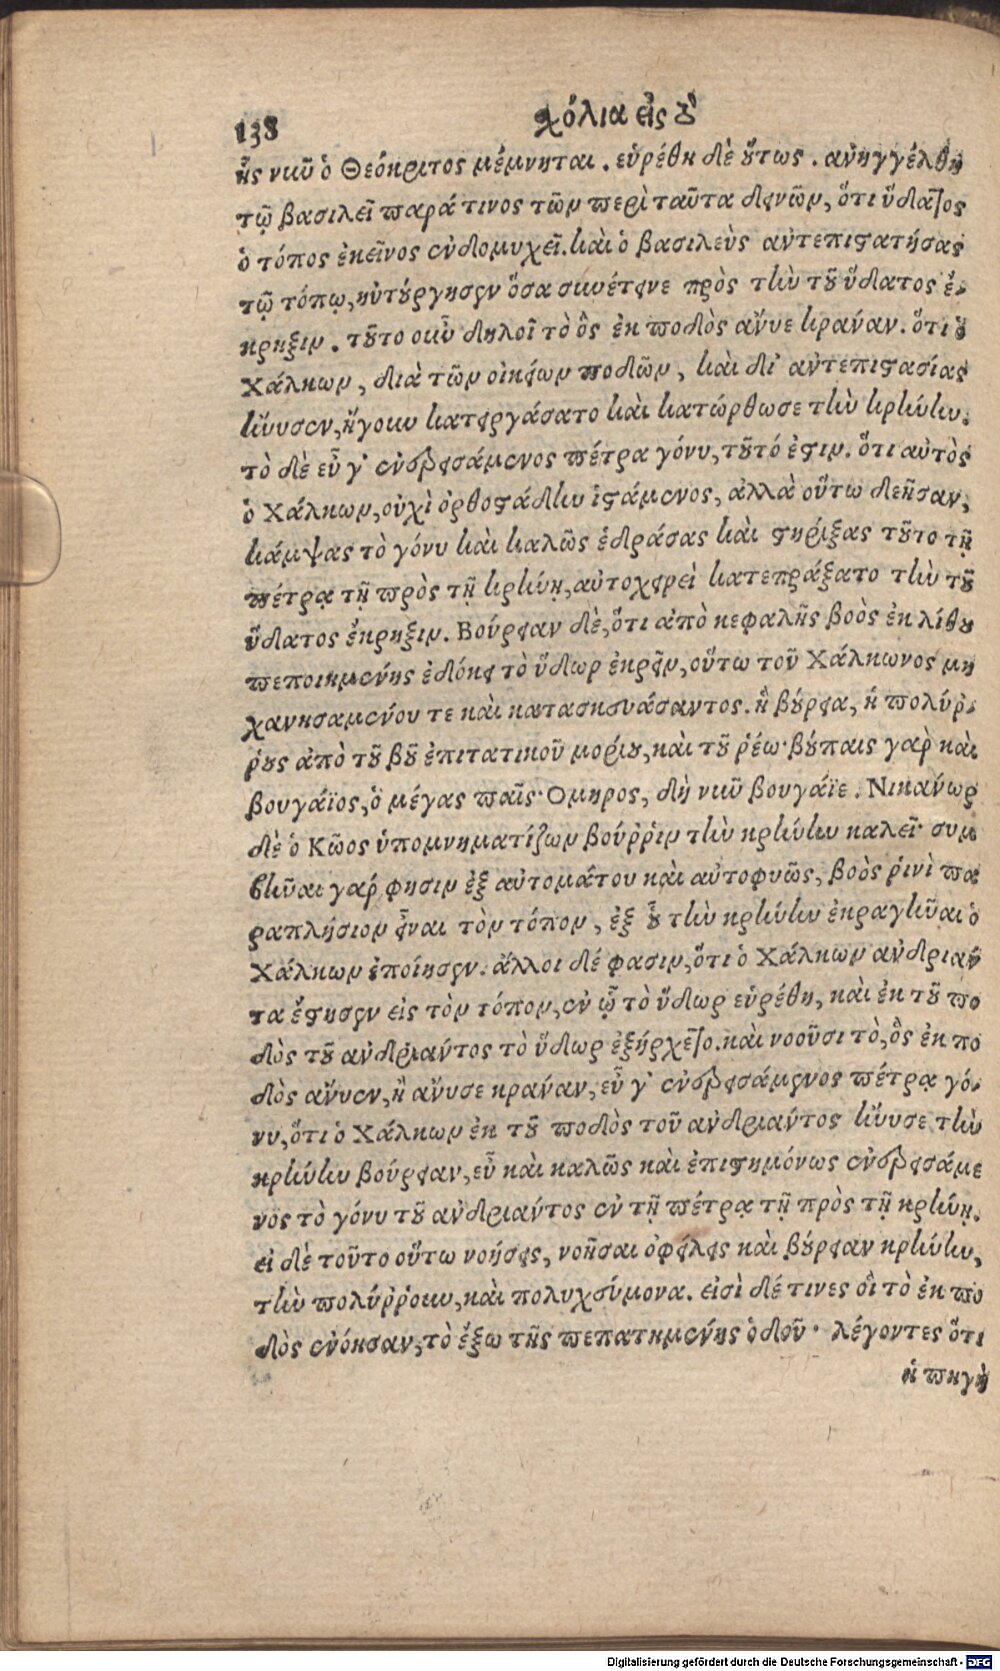 138 χόλια εἰς τὸ
ἧς νῦν ὁ Θεόκριτος μέμνηται. εὑρέθη δὲ οὕτως. ἀνηγγέλθη
τῷ βασιλεῖ παρά τινος τῶν περὶ ταῦτα δεινῶν, ὅτι ὕδατος
ὁ τόπος ἐκεῖνος ἐνδομυχεῖ. καὶ ὁ βασιλεὺς αὐτεπιστατήσας
τῷ τόπῳ, ηὐτούργησεν ὅσα συνέτεινε πρὸς τὴν τοῦ ὕδατος ἔκ-
κρηξιν. τοῦτο οὖν δηλοῖ τὸ ὃς ἐκ ποδὸς ἄνυε κράναν. ὅτι ὁ
Χάλκων, διὰ τῶν οἰκείων ποδῶν, καὶ δι' αὐτεπιστασίας
ἤνυσεν, ἤγουν κατειργάσατο καὶ κατώρθωσε τὴν κρήνην.
τὸ δὲ εὖ γ' ἐνερεισάμενος πέτρα γόνυ, τοῦτό ἐστιν. ὅτι αὐτὸς
ὁ Χάλκων, οὐχὶ ὀρθοστάδην ἱστάμενος, ἀλλὰ οὕτω δεῆσαν,
κάμψας τὸ γόνυ καὶ καλῶς ἑδράσας καὶ στηρίξας τοῦτο τῇ
πέτρᾳ τῇ πρὸς τῇ κρήνῃ, αὐτοχειρεὶ κατεπράξατο τὴν τοῦ
ὕδατος ἔκρηξιν. Βούρειαν δὲ, ὅτι ἀπὸ κεφαλῆς βοὸς ἐκ λίθου
πεποιημένης ἐδόκει τὸ ὕδωρ ἐκρεῖν, οὕτω τοῦ Χάλκωνος μη
χανησαμένου τε καὶ κατασκευάσαντος. ἢ βούρεια, ἡ πολύρ-
ῥους ἀπὸ τοῦ βοῦ ἐπιτατικοῦ μορίου, καὶ τοῦ ῥέω· βούπαις γὰρ καὶ
βουγάϊος, ὁ μέγας παῖς· Ὅμηρος, δὴ νῦν βουγάϊε. Νικάνωρ
δὲ ὁ Κῶος ὑπομνηματίζων βούῤῥιν τὴν κρήνην καλεῖ· συμ
βῆναι γάρ φησιν ἐξ αὐτομάτου καὶ αὐτοφυῶς, βοὸς ῥινὶ πα
ραπλήσιον εἶναι τὸν τόπον, ἐξ οὗ τὴν κρήνην ἐκραγῆναι ὁ
Χάλκων ἐποίησεν. ἄλλοι δέ φασιν, ὅτι ὁ Χάλκων ἀνδριάν
τα ἔστησεν εἰς τὸν τόπον, ἐν ᾧ τὸ ὕδωρ εὑρέθη, καὶ ἐκ τοῦ πο
δὸς τοῦ ἀνδριάντος τὸ ὕδωρ ἐξήρχετο. καὶ νοοῦσι τὸ, ὃς ἐκ πο
δὸς ἄνυεν, ἢ ἄνυσε κράναν, εὖ γ' ἐνερεισάμενος πέτρᾳ γό-
νυ, ὅτι ὁ Χάλκων ἐκ τοῦ ποδὸς τοῦ ἀνδριάντος ἤνυσε τὴν
κρήνην βούρειαν, εὖ καὶ καλῶς καὶ ἐπιστημόνως ἐνερεισάμε
νος τὸ γόνυ τοῦ ἀνδριάντος ἐν τῇ πέτρᾳ τῇ πρὸς τῇ κρήνῃ.
εἰ δὲ τοῦτο οὕτω νοήσεις, νοῆσαι ὀφείλεις καὶ βούρειαν κρήνην,
τὴν πολύῤῥουν, καὶ πολυχεύμονα. εἰσὶ δέ τινες οἳ τὸ ἐκ πο
δὸς ἐνόησαν, τὸ ἔξω τῆς πεπατημένης ὁδοῦ· λέγοντες ὅτι
ἡ πηγὴ
Digitalisierung gefördert durch die Deutsche Forschungsgemeinschaft - DFG